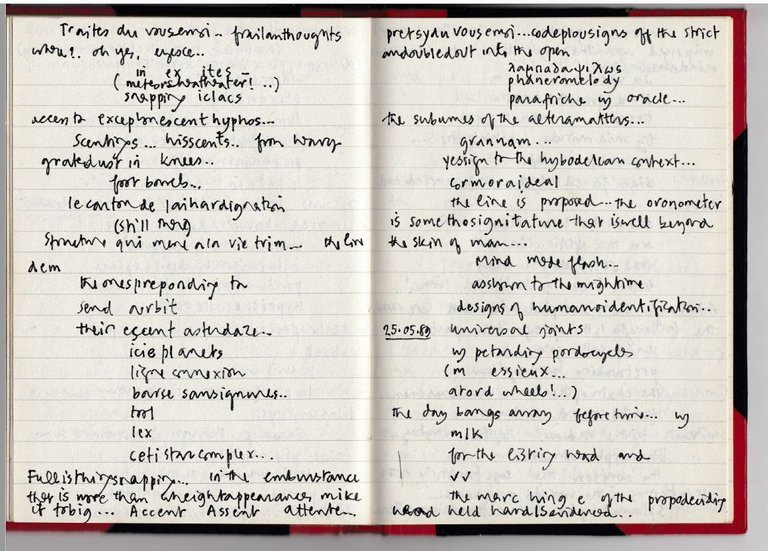 Traites du vousemoi... frailanthoughts
when?. oh yes, eyesce..
in ex ites
(meteorsheatheater! ..)
snapping iclacs
access to excephonescent hyphos...
Scentings... hisscents.. from heavy
gratedust in knees..
foot bombs...
le canton de laihardignation
(still there)
Structure qui mene a la vie trim.... the line
dem
the onespreponding to
send airbit
their escent astudaze...
icie planets
ligne connexion
bourse sansignunes..
trol
lex
cetistarcomplex...
Fullisthingsnapping... in the embunstance
that is more than wheightappearances make
it tobig... Accent Assent attente...
pretsydu vousemoi...codeplousigns off the strict
andoubledout into the open
λαμπαδαψιλως
phaneromelody
parafriche in oracle...
the subumes of the alteramatters...
grannam...
yessign to the hybodelean context...
cormoraideal
the line is proposed... the oronometer
is somethosignitature that iswell beyond
the skin of man...
mind mode flash..
assborn to the mightime
designs of humanoidentifization..
25.05.89 universal joints
in petarding pordocycles
(m essieux...
atord wheels!..)
the day bangs array before time... in
mlk
for the listing head and
vv
the marc hing e of the propodeciding
head held hardisevidenced...